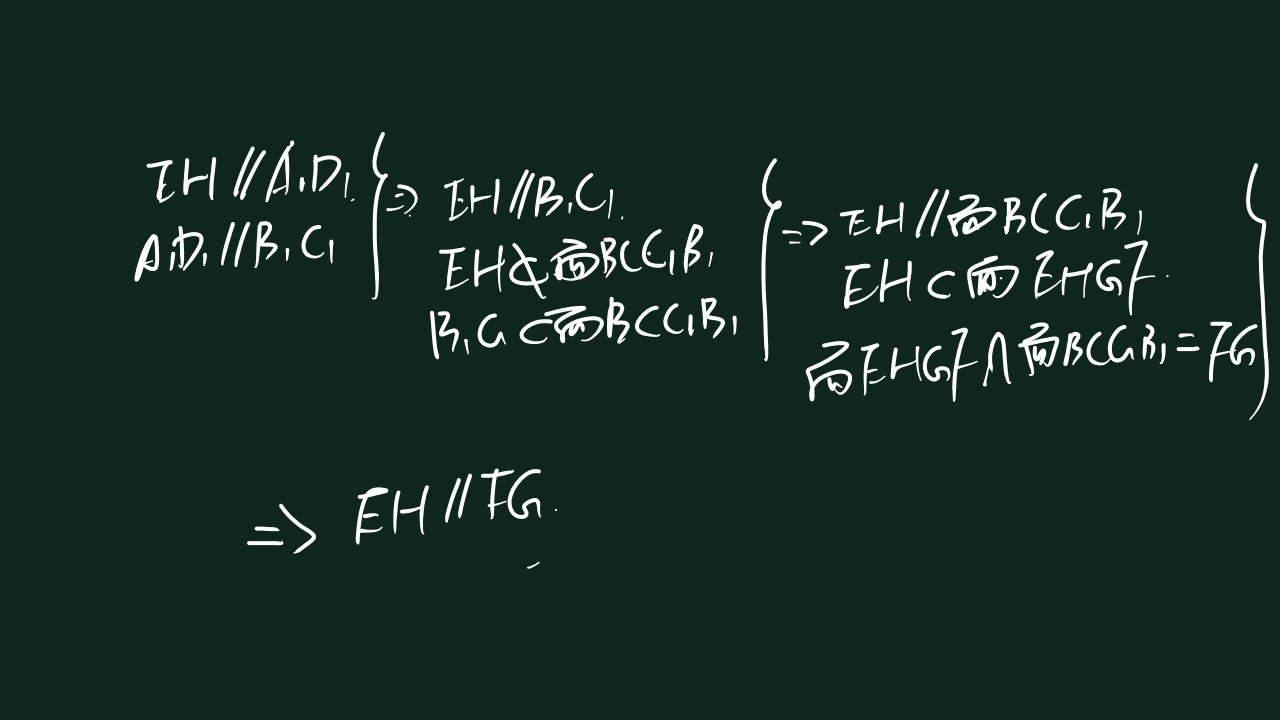 EH∥A₁D₁.
A₁D₁∥B₁C₁
} ⇒
EH∥B₁C₁.
EH⊄面BCC₁B₁
B₁C₁⊂面BCC₁B₁
} ⇒
EH∥面BCC₁B₁
EH⊂面EHGF.
面EHGF∩面BCC₁B₁=FG
}
⇒ EH∥FG.